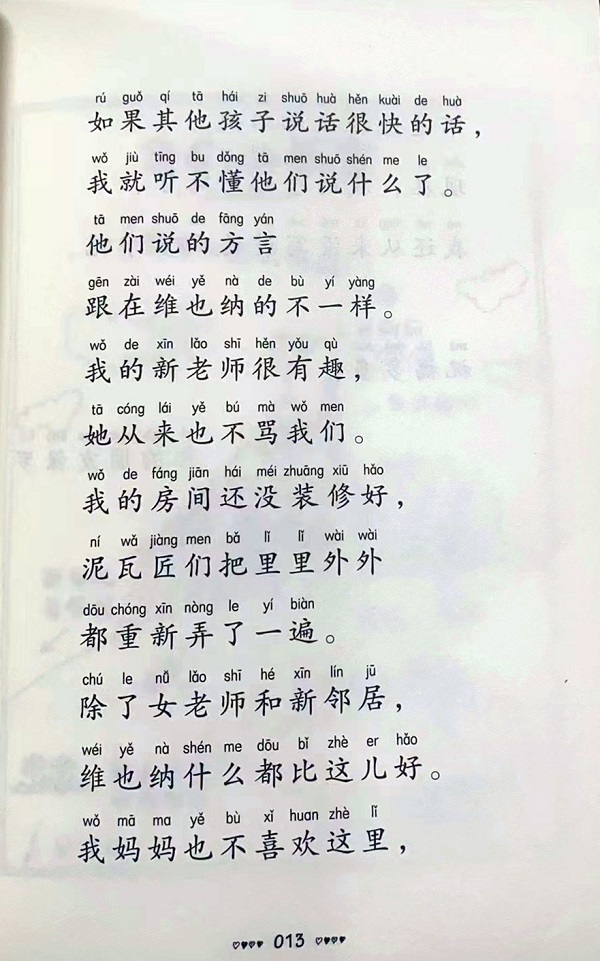 rú guǒ qí tā hái zi shuō huà hěn kuài de huà
如果其他孩子说话很快的话，
wǒ jiù tīng bu dǒng tā men shuō shén me le
我就听不懂他们说什么了。
tā men shuō de fāng yán
他们说的方言
gēn zài wéi yě nà de bù yí yàng
跟在维也纳的不一样。
wǒ de xīn lǎo shī hěn yǒu qù
我的新老师很有趣，
tā cóng lái yě bú mà wǒ men
她从来也不骂我们。
wǒ de fáng jiān hái méi zhuāng xiū hǎo
我的房间还没装修好，
ní wǎ jiàng men bǎ lǐ lǐ wài wài
泥瓦匠们把里里外外
dōu chóng xīn nòng le yí biàn
都重新弄了一遍。
chú le nǚ lǎo shī hé xīn lín jū
除了女老师和新邻居，
wéi yě nà shén me dōu bǐ zhè er hǎo
维也纳什么都比这儿好。
wǒ mā ma yě bù xǐ huan zhè lǐ
我妈妈也不喜欢这里，
013